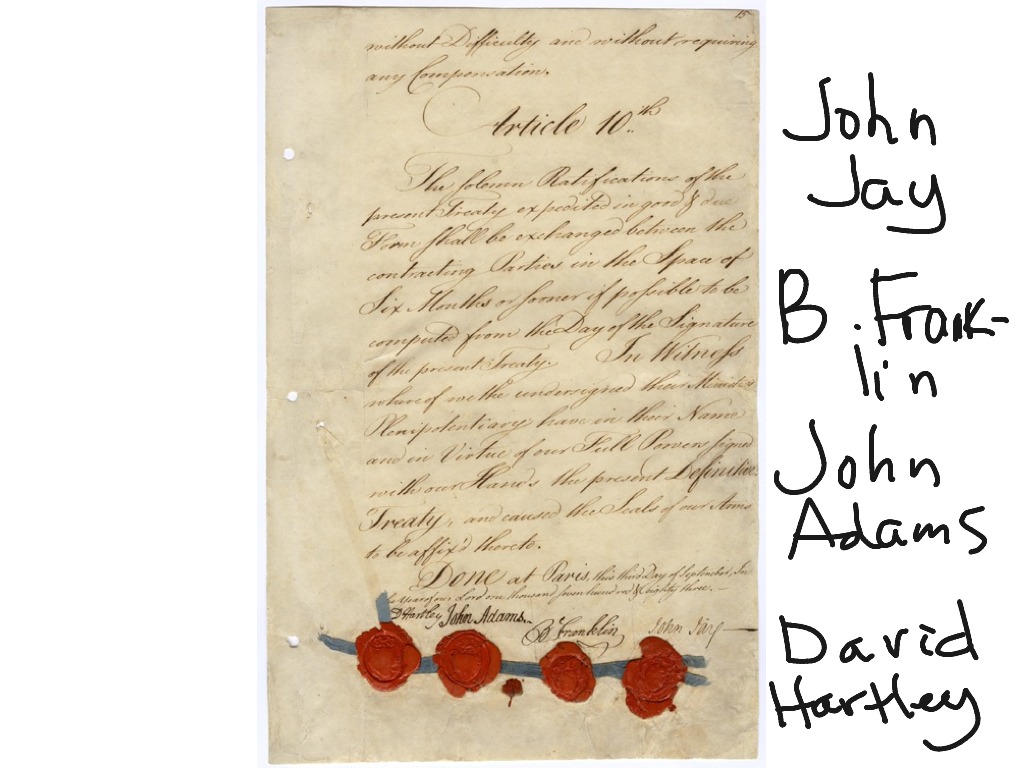 15
without Difficulty and without requiring
any Compensation.
Article 10th
The solemn Ratifications of the
present Treaty expedited in good & due
Form shall be exchanged between the
contracting Parties in the Space of
Six Months or sooner if possible to be
computed from the Day of the Signature
of the present Treaty. In Witness
whereof we the undersigned their Ministers
Plenipotentiary have in their Name
and in Virtue of our Full Powers signed
with our Hands the present Definitive
Treaty, and caused the Seals of our Arms
to be affix'd thereto.
Done at Paris, this third Day of September, In
the Year of our Lord one thousand seven hundred & Eighty three.
D Hartley John Adams. B Franklin John Jay
John
Jay
B. Frank-
lin
John
Adams
David
Hartley